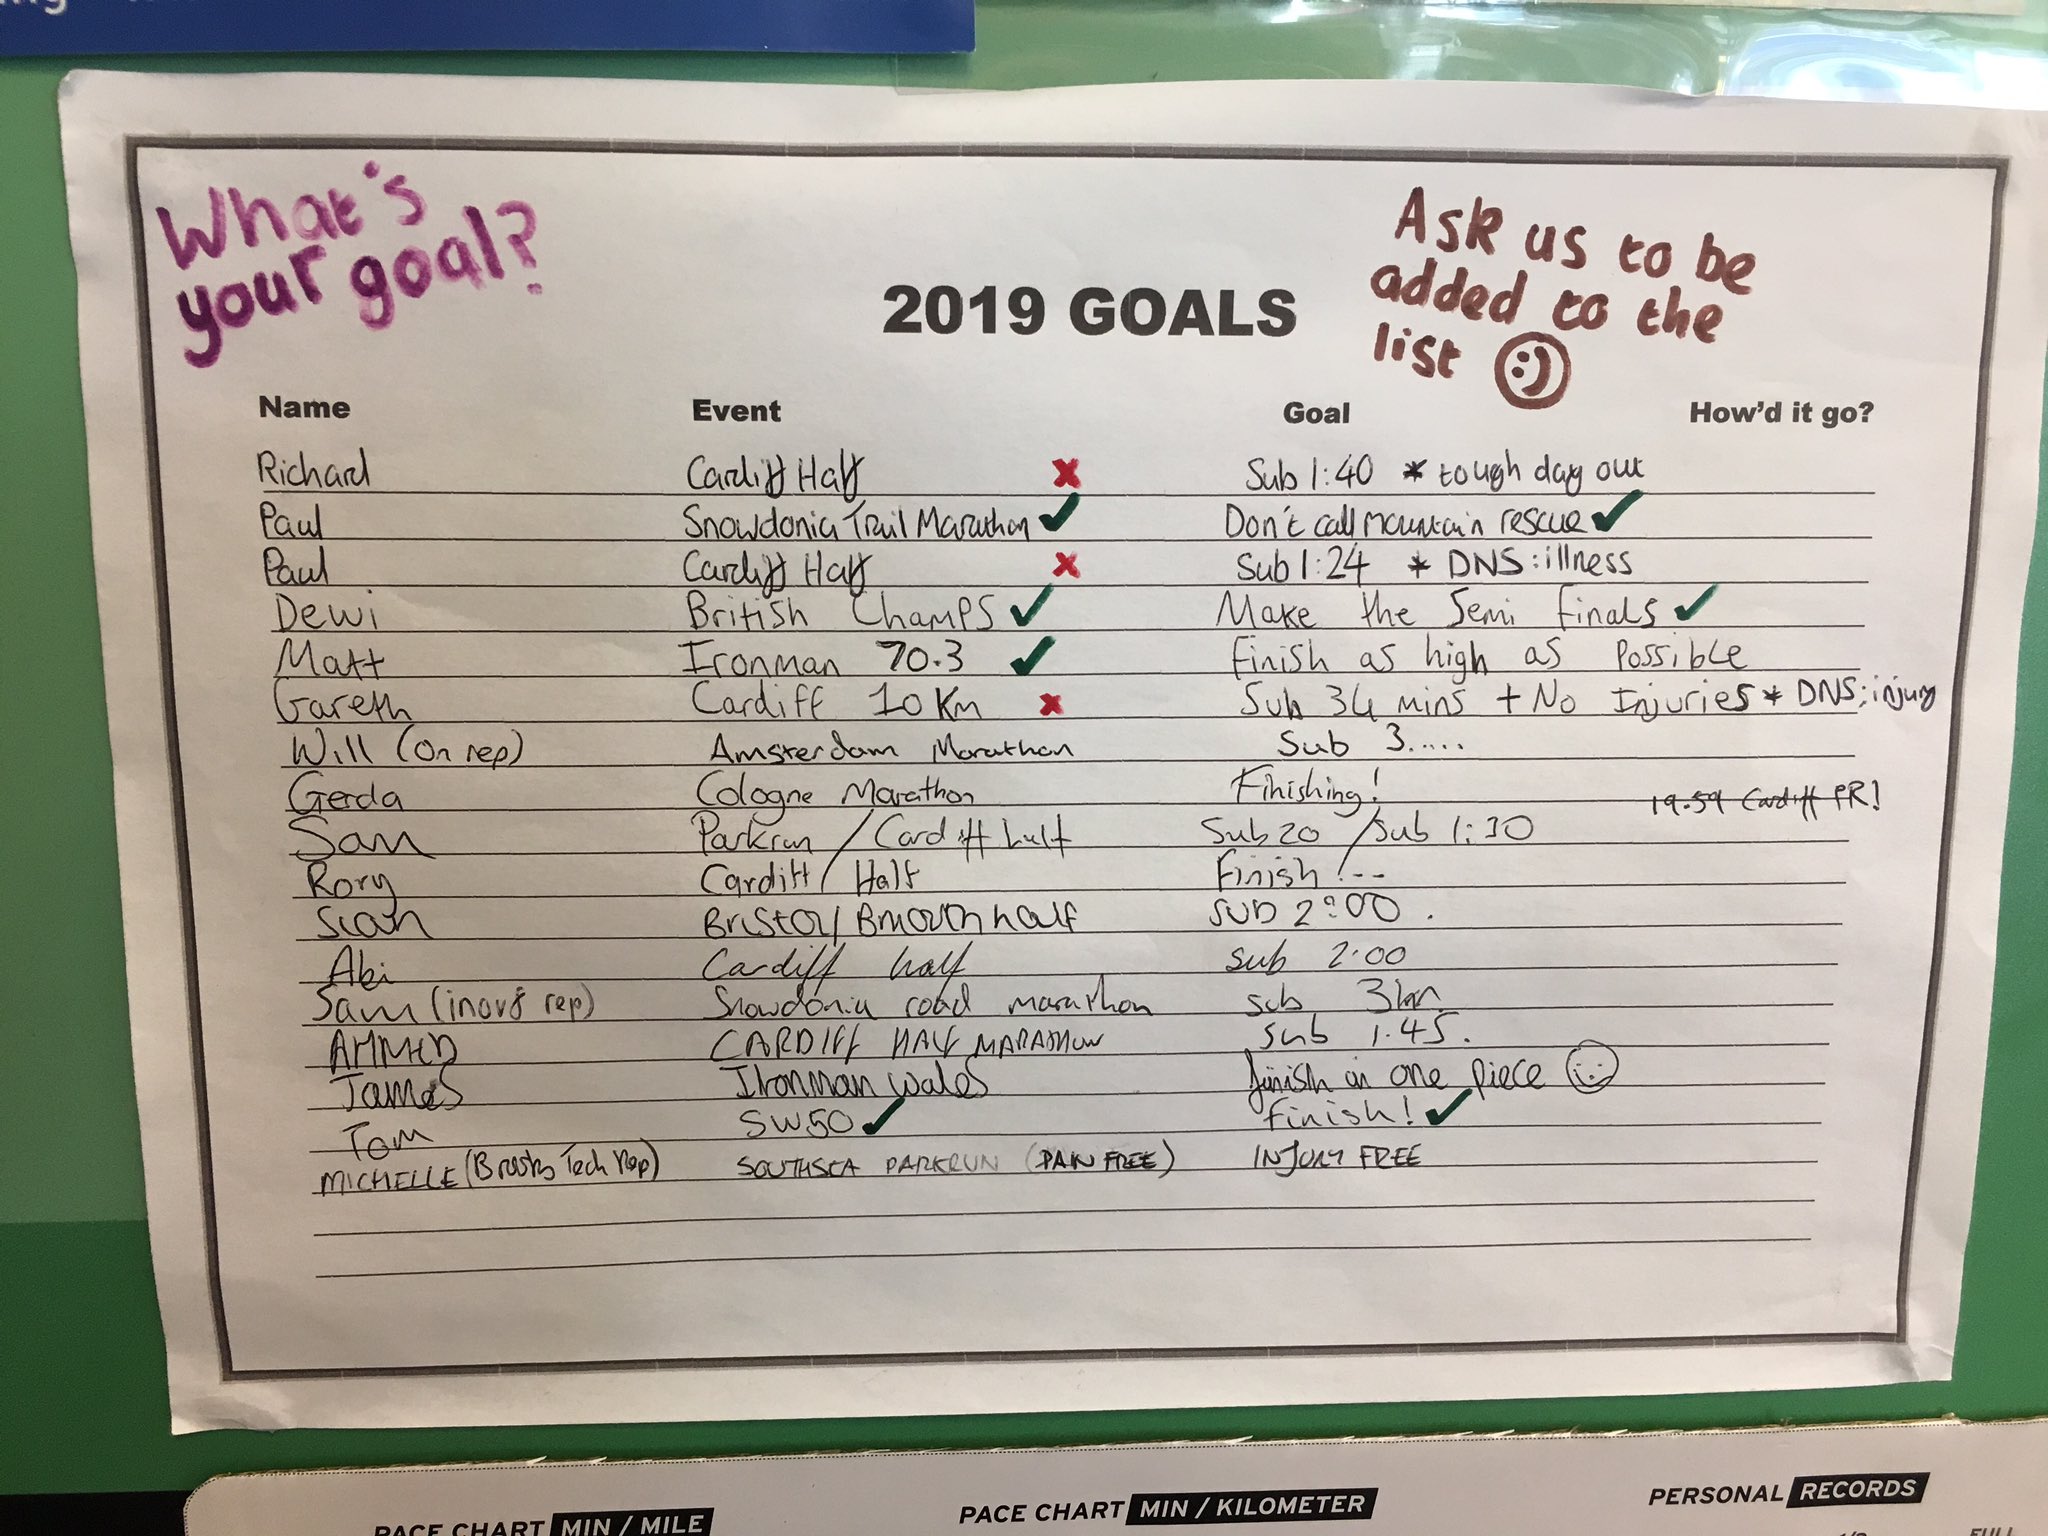 What's your goal?
Ask us to be added to the list
2019 GOALS
Name Event Goal How'd it go?
Richard Cardiff Half ✗ Sub 1:40 * tough day out
Paul Snowdonia Trail Marathon ✓ Don't call mountain rescue ✓
Paul Cardiff Half ✗ Sub 1:24 * DNS: illness
Dewi British Champs ✓ Make the Semi Finals ✓
Matt Ironman 70.3 ✓ Finish as high as possible
Gareth Cardiff 10 Km ✗ Sub 34 mins + No Injuries * DNS: injury
Will (On rep) Amsterdam Marathon Sub 3.....
Gerda Cologne Marathon Finishing!
Sam Parkrun / Cardiff half Sub 20 / Sub 1:30 19.59 Cardiff PR!
Rory Cardiff Half Finish!--
Sian Bristol / Bmouth half SUB 2:00.
Abi Cardiff half sub 2.00
Sam (inov8 rep) Snowdonia road marathon sub 3hr
AHMED CARDIFF HALF MARATHON sub 1.45.
James Ironman Wales finish in one piece
Tom SW50 ✓ finish! ✓
MICHELLE (Brooks Tech Rep) SOUTHSEA PARKRUN (PAIN FREE) INJURY FREE
PACE CHART MIN / MILE PACE CHART MIN / KILOMETER PERSONAL RECORDS